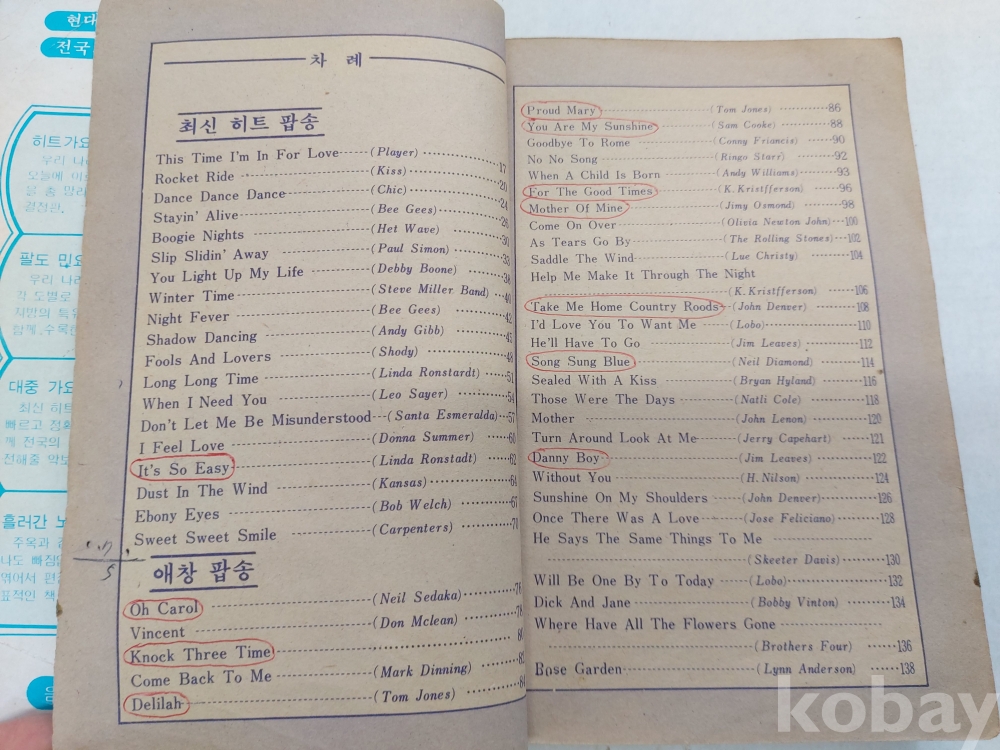 현대
전국
히트가요
우리 나
팔도 민요
우리 나라
각 도별로
대중 가요
최신 히트
흘러간 노
주옥과 같
차 례
최신 히트 팝송
This Time I'm In For Love (Player) 17
Rocket Ride (Kiss) 20
Dance Dance Dance (Chic) 24
Stayin' Alive (Bee Gees) 26
Boogie Nights (Het Wave) 30
Slip Slidin' Away (Paul Simon) 33
You Light Up My Life (Debby Boone) 38
Winter Time (Steve Miller Band) 40
Night Fever (Bee Gees) 42
Shadow Dancing (Andy Gibb)
Fools And Lovers (Shody) 48
Long Long Time (Linda Ronstardt) 51
When I Need You (Leo Sayer) 54
Don't Let Me Be Misunderstood (Santa Esmeralda) 57
I Feel Love (Donna Summer) 60
It's So Easy (Linda Ronstadt) 62
Dust In The Wind (Kansas) 64
Ebony Eyes (Bob Welch) 67
Sweet Sweet Smile (Carpenters) 71
애창 팝송
Oh Carol (Neil Sedaka) 76
Vincent (Don Mclean) 78
Knock Three Time 80
Come Back To Me (Mark Dinning) 82
Delilah (Tom Jones) 84
Proud Mary (Tom Jones) 86
You Are My Sunshine (Sam Cooke) 88
Goodbye To Rome (Conny Friancis) 90
No No Song (Ringo Starr) 92
When A Child Is Born (Andy Williams) 93
For The Good Times (K. Kristfferson) 96
Mother Of Mine (Jimy Osmond) 98
Come On Over (Olivia Newton John) 100
As Tears Go By (The Rolling Stones) 102
Saddle The Wind (Lue Christy) 104
Help Me Make It Through The Night
(K. Kristfferson) 106
Take Me Home Country Roods (John Denver) 108
I'd Love You To Want Me (Lobo) 110
He'll Have To Go (Jim Leaves) 112
Song Sung Blue (Neil Diamond) 114
Sealed With A Kiss (Bryan Hyland) 116
Those Were The Days (Natli Cole) 118
Mother (John Lenon) 120
Turn Around Look At Me (Jerry Capehart) 121
Danny Boy (Jim Leaves) 122
Without You (H. Nilson) 124
Sunshine On My Shoulders (John Denver) 126
Once There Was A Love (Jose Feliciano) 128
He Says The Same Things To Me
(Skeeter Davis) 130
Will Be One By To Today (Lobo) 132
Dick And Jane (Bobby Vinton) 134
Where Have All The Flowers Gone
(Brothers Four) 136
Rose Garden (Lynn Anderson) 138
kobay